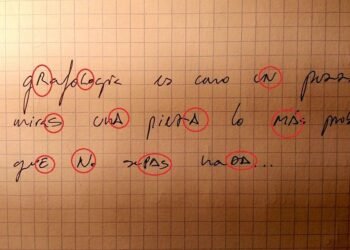 gRafoLogía es como UN
miraS unA piezA lo MÁs
quE No sePAS naDA...